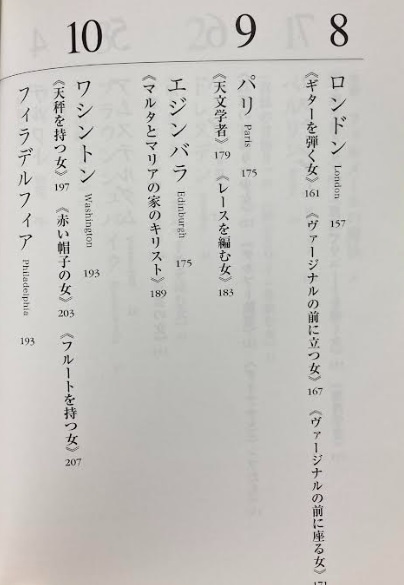 8
ロンドン London 157
《ギターを弾く女》161 《ヴァージナルの前に立つ女》167 《ヴァージナルの前に座る女》171
9
パリ Paris 175
《天文学者》179 《レースを編む女》183
エジンバラ Edinburgh 175
《マルタとマリアの家のキリスト》189
10
ワシントン Washington 193
《天秤を持つ女》197 《赤い帽子の女》203 《フルートを持つ女》207
フィラデルフィア Philadelphia 193